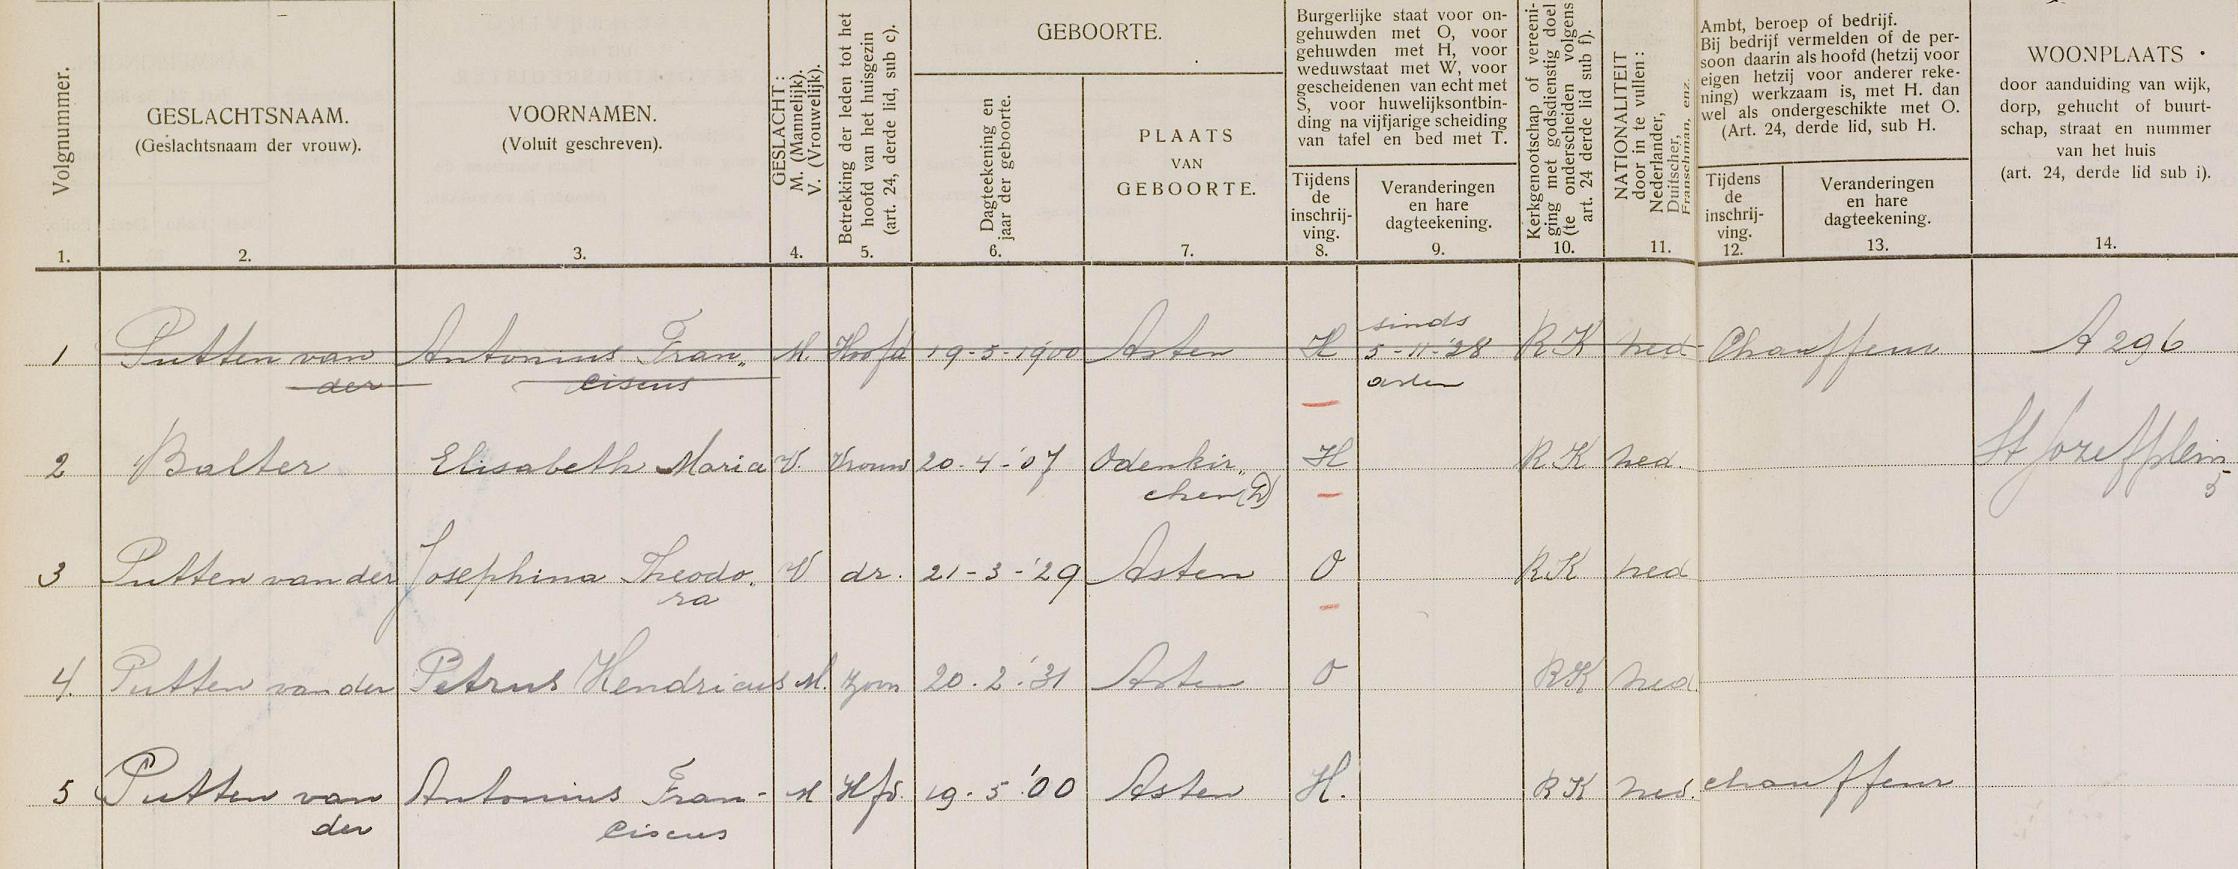 Volgnummer.
1.
GESLACHTSNAAM.
(Geslachtsnaam der vrouw).
2.
VOORNAMEN.
(Voluit geschreven).
3.
GESLACHT:
M. (Mannelijk).
V. (Vrouwelijk).
4.
Betrekking der leden tot het
hoofd van het huisgezin
(art. 24, derde lid, sub c).
5.
GEBOORTE.
Dagteekening en
jaar der geboorte.
6.
PLAATS
VAN
GEBOORTE.
7.
Burgerlijke staat voor on-
gehuwden met O, voor
gehuwden met H, voor
weduwstaat met W, voor
gescheidenen van echt met
S, voor huwelijksontbin-
ding na vijfjarige scheiding
van tafel en bed met T.
Tijdens
de
inschrij-
ving.
8.
Veranderingen
en hare
dagteekening.
9.
Kerkgenootschap of vereeni-
ging met godsdienstig doel
(te onderscheiden volgens
art. 24 derde lid sub f).
10.
NATIONALITEIT
door in te vullen:
Nederlander,
Duitscher,
Franschman, enz.
11.
Ambt, beroep of bedrijf.
Bij bedrijf vermelden of de per-
soon daarin als hoofd (hetzij voor
eigen hetzij voor anderer reke-
ning) werkzaam is, met H. dan
wel als ondergeschikte met O.
(Art. 24, derde lid, sub H.
Tijdens
de
inschrij-
ving.
12.
Veranderingen
en hare
dagteekening.
13.
WOONPLAATS
door aanduiding van wijk,
dorp, gehucht of buurt-
schap, straat en nummer
van het huis
(art. 24, derde lid sub i).
14.
sinds
1 Putten van Antonius Fran„ M. Hoofd 19-5-1900 Asten H 5-11-'28 RK ned Chauffeur A 296
der ciscus asten
2 Balter Elisabeth Maria V. Vrouw 20-4-'07 Odenkir„ H RK ned. St Jozefplein
chen (D) 5
3 Putten van der Josephina Theodo. V dr. 21-3-'29 Asten O RK ned
ra
4. Putten van der Petrus Hendricus M. zoon 20.2.'31 Asten O RK ned.
5 Putten van Antonius Fran- M Hfd. 19-5-'00 Asten H. RK ned. chauffeur
der ciscus